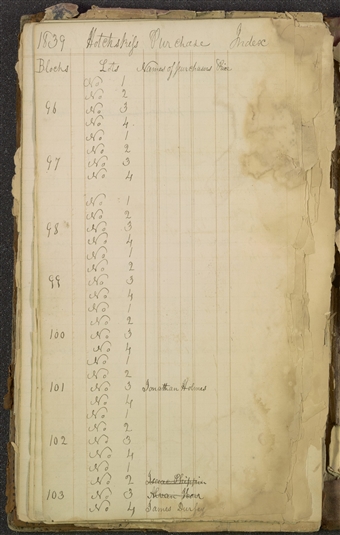 1839 Hotchkiss Purchase Index
Blocks Lots Names of purchasers
No 1
No 2
96 No 3
No 4
No 1
No 2
97 No 3
No 4
No 1
No 2
98 No 3
No 4
No 1
No 2
99 No 3
No 4
No 1
No 2
100 No 3
No 4
No 1
No 2
101 No 3 Jonathan Holmes
No 4
No 1
No 2
102 No 3
No 4
No 1
No 2 Isaac Phippin
103 No 3
No 4 James Durfey